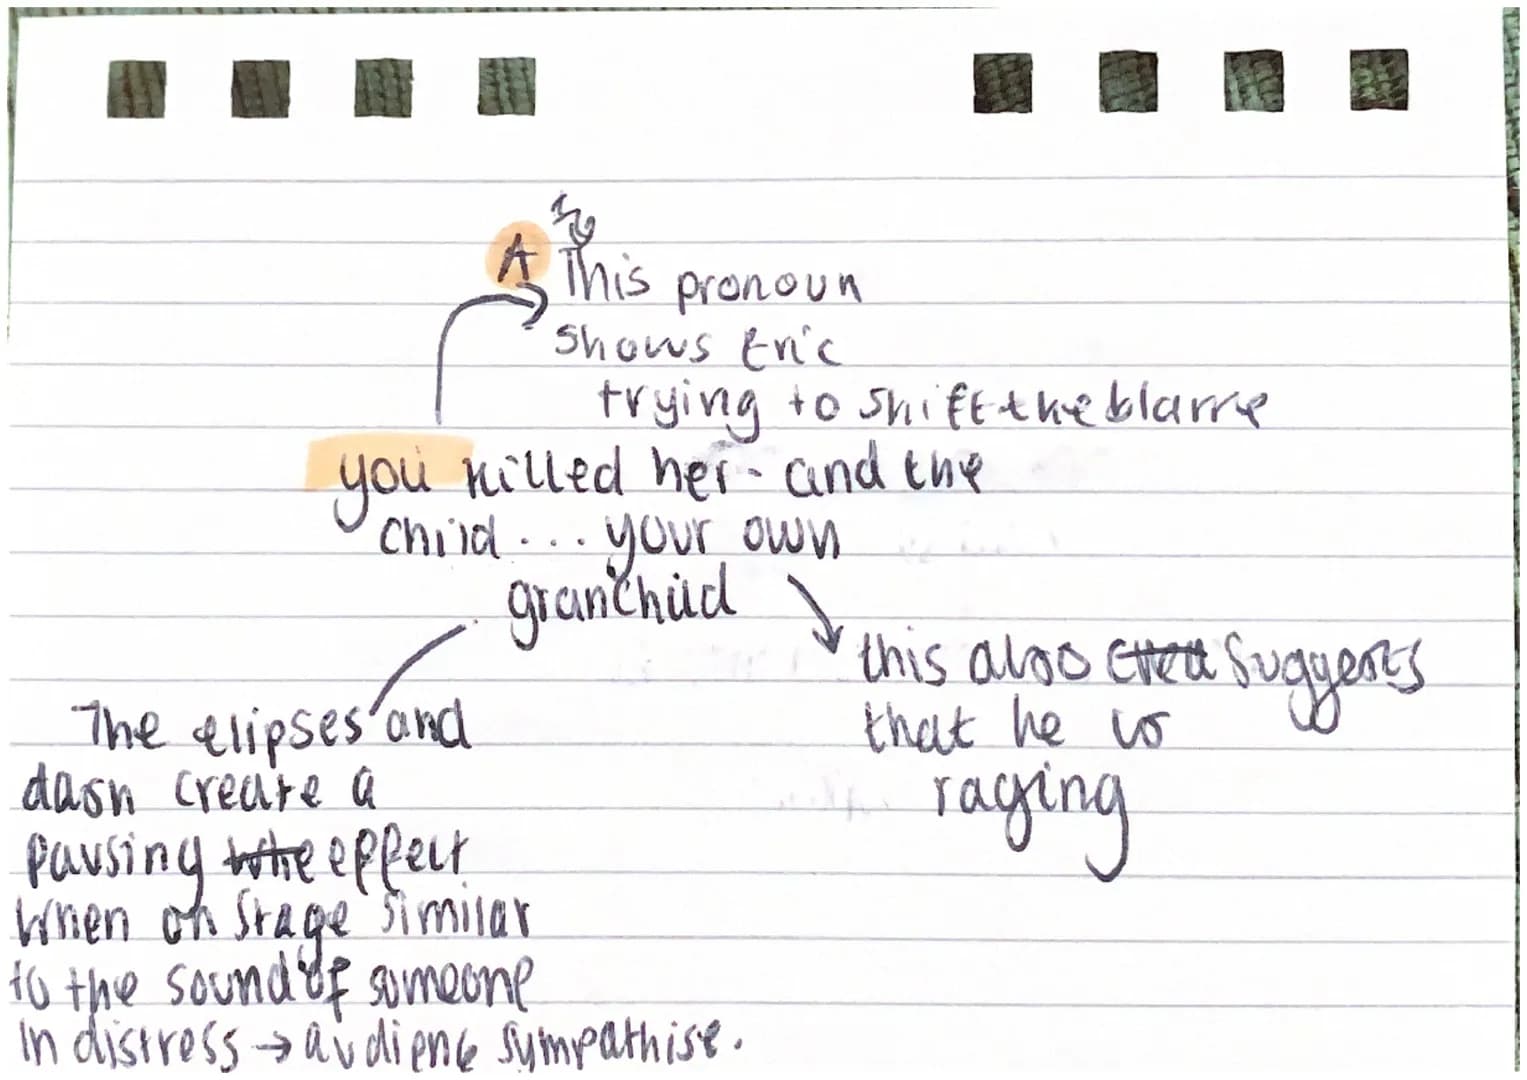 A This pronoun
shows Eric
trying to shift the blame
you killed her - and the
child ... your own
granchild
this also suggests
that he is
raging
The elipses and
dash create a
pausing effect
When on stage similar
to the sound of someone
in distress → audiene sympathise.